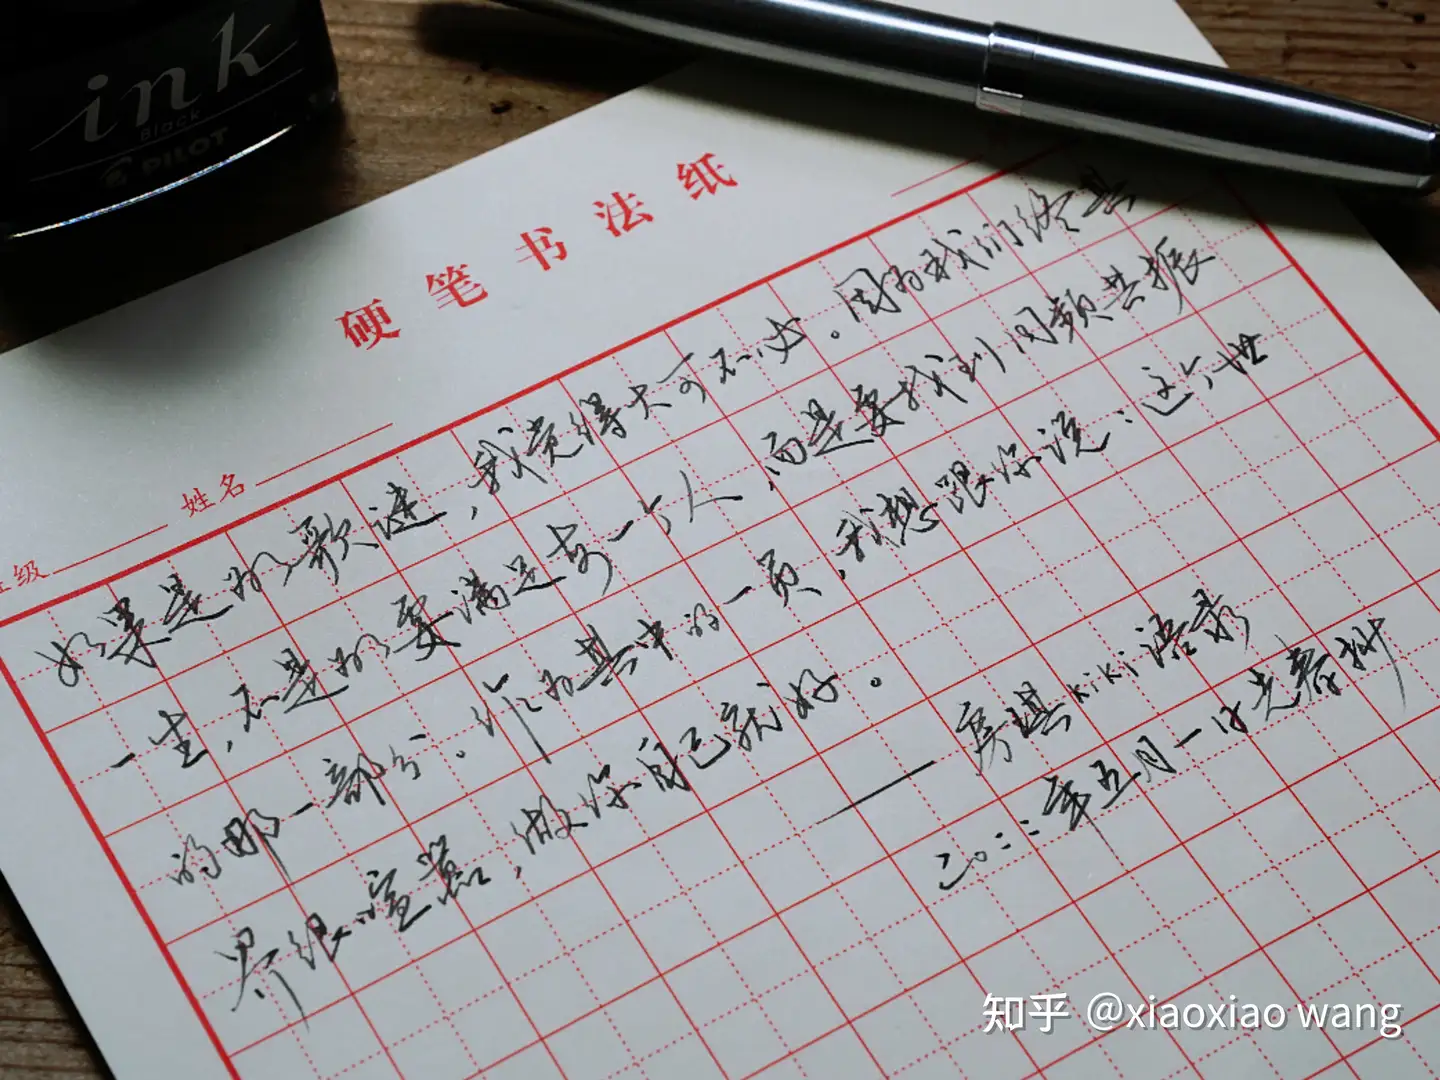 ink
Black
PILOT
硬笔书法纸
级 姓名
如果是为了歌迷，我觉得大可不必。因为我们终其
一生，不是为了要满足每一个人，而是要找到同频共振
的那一部分。作为其中的一员，我想跟你说：这个世
界很喧嚣，做你自己就好。
——房琪kiki语录
二〇二二年五月一日
知乎 @xiaoxiao wang